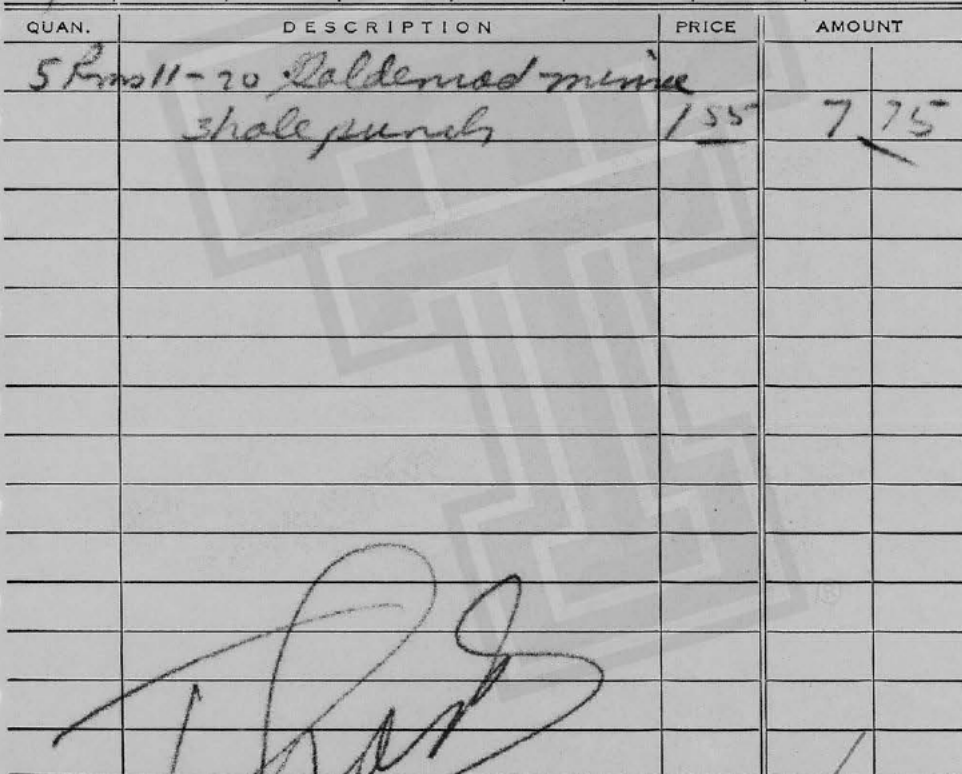 QUAN. DESCRIPTION PRICE AMOUNT
5 Rms 11-20 Goldenrod mimeo
3 hole punch 1 55 7 75